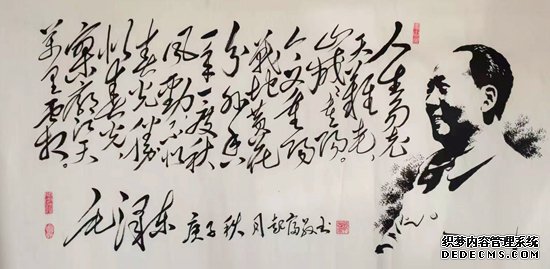 人生易老
天难老,
岁岁重阳。
今又重阳
战地黄花
分外香
一年一度秋
风劲,不似
春光胜
似春光,
寥廓江天
万里霜.
毛泽东
庚子秋月
书
织梦内容管理系统
DEDECMS.COM